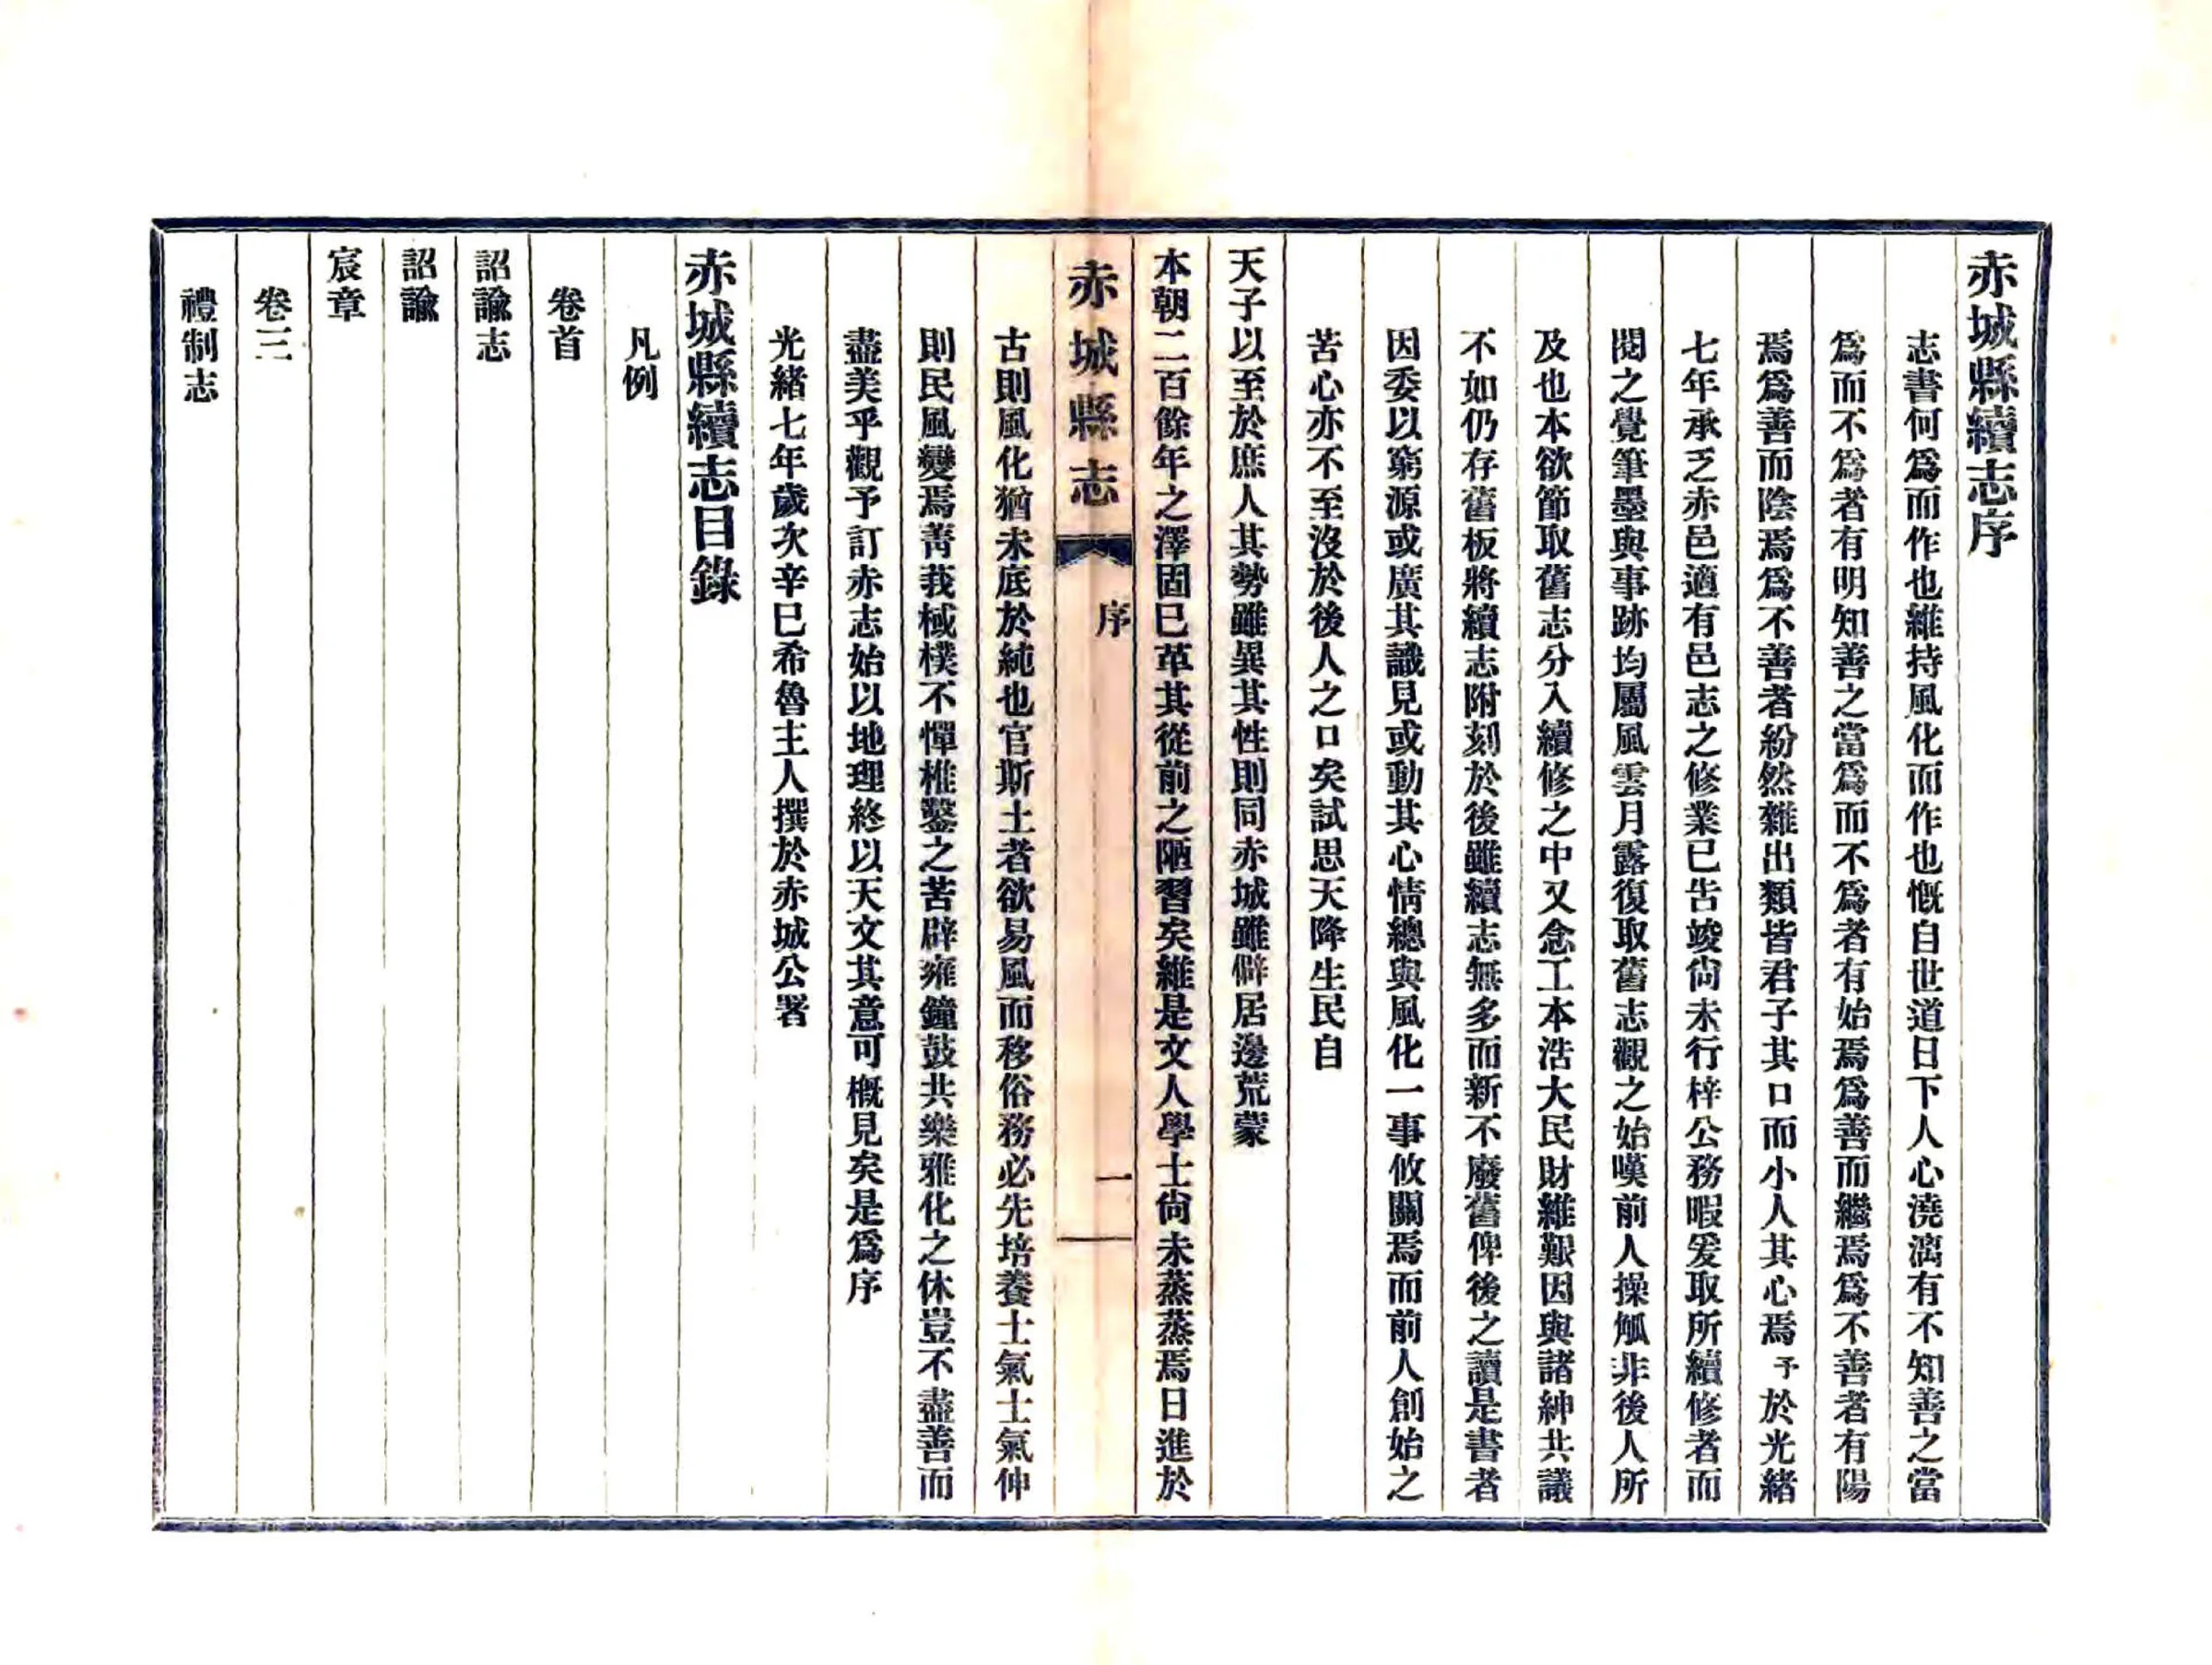 赤城縣續志序
志書何爲而作也維持風化而作也慨自世道日下人心澆漓有不知善之當
爲而不爲者有明知善之當爲而不爲者有始焉爲善而繼焉爲不善者有陽
焉爲善而陰焉爲不善者紛然雜出類皆君子其口而小人其心焉予於光緒
七年承乏赤邑適有邑志之修業已告竣尙未行梓公務暇爰取所續修者而
閱之覺筆墨與事跡均屬風雲月露復取舊志觀之始嘆前人操觚非後人所
及也本欲節取舊志分入續修之中又念工本浩大民財維艱因與諸紳共議
不如仍存舊板將續志附刻於後雖續志無多而新不廢舊俾後之讀是書者
因委以窮源或廣其識見或動其心情總與風化一事攸關焉而前人創始之
苦心亦不至沒於後人之口矣試思天降生民自
天子以至於庶人其勢雖異其性則同赤城雖僻居邊荒蒙
本朝二百餘年之澤固已革其從前之陋習矣維是文人學士尙未蒸蒸焉日進於
赤城縣志
序
一
古則風化猶未底於純也官斯土者欲易風而移俗務必先培養士氣士氣伸
則民風變焉菁莪棫樸不憚椎鑿之苦辟雍鐘鼓共樂雅化之休豈不盡善而
盡美乎觀予訂赤志始以地理終以天文其意可槪見矣是爲序
光緒七年歲次辛巳希魯主人撰於赤城公署
赤城縣續志目錄
凡例
卷首
詔諭志
詔諭
宸章
卷三
禮制志